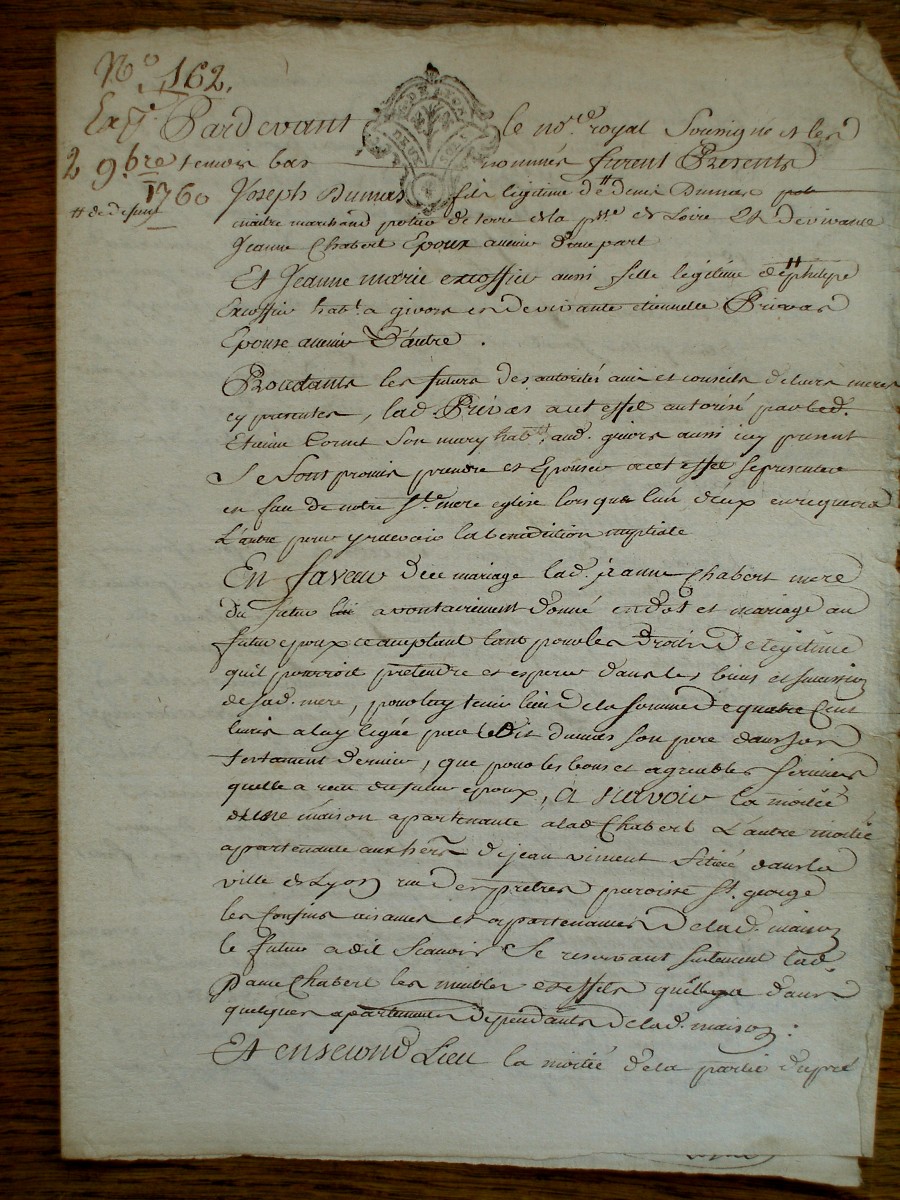 N.° 162.
Pardevant le no.re royal Soussigné et les
2 9bre temoins bas nommés furent Presents
1760 Joseph Dumas fils legitime de # denis Dumas
# de defunt
maitre marchand potier de terre de la p.sse de Loire Et de vivante
Jeanne Chabert Epoux d'une part
Et Jeanne marie excoffier aussi fille legitime de # philipe
Excoffier hab.t a givors et de vivante etiennette Privas
Epouse d'autre .
Procedants les futurs des autorités avis et conseils de leurs meres
cy presentes, lad. Privas a cet effet autorisé par led.
Etienne Cornet Son mary hab.t aud. givors aussi icy present
Se Sont promis prendre et Epouser a cet effet se presenter
en face de notre S.te mere eglise lorsque l'un d'eux en requerra
L'autre pour y recevoir la benediction nuptiale
En faveur de ce mariage lad. jeanne Chabert mere
du futur a donné en dot et mariage au
futur epoux acceptant tant pour les droits de legitime
qu'il pourroit pretendre et esperer dans les biens et succession
de sad. mere, pour luy tenir lieu de la somme de quatre Cent
livres a luy legué par led. dumas son pere dans son
testament dernier, que pour les bons et agreables services
quelle a recu du futur epoux, a scavoir la moitié
d'une maison appartenante a lad. Chabert L'autre moitié
appartenante aux her.s de jean viment Scituée dans la
ville de Lyon rue des prêtres paroisse S.t george
les Confins aisances et appartenances de lad. maison
le futur a dit Scavoir Se reservant seulement lad.
Chabert les meubles et effets qu'elle a dans
quelques apartements dependants de lad. maison :
Et en second Lieu la moitié de la partie du pré